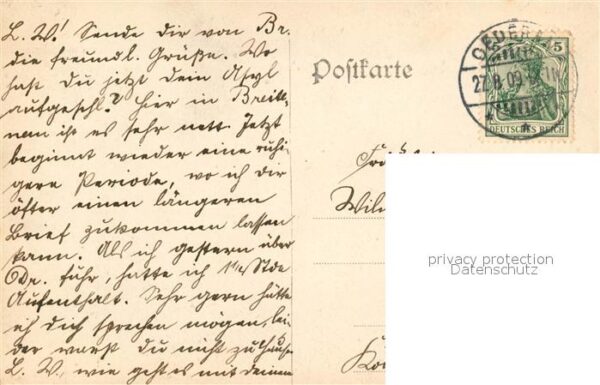 L. W.! Sende dir von Br.
die freundl. Grüße. Wo
hast du jetzt dein Asyl
aufgeschl.? Hier in Breite-
nau ist es sehr nett. Jetzt
beginnt wieder eine ruhi-
gere Periode, wo ich dir
öfter einen längeren
Brief zukommen lassen
kann. Als ich gestern über
Dr. fuhr, hatte ich 1½ Stde
Aufenthalt. Sehr gern hätte
ich dich sprechen mögen, lei-
der warst du nicht zu Hause.
L. W., wie geht es mit deinem
Postkarte
OEDERAN
27.8.09
5
DEUTSCHES REICH
privacy protection
Datenschutz